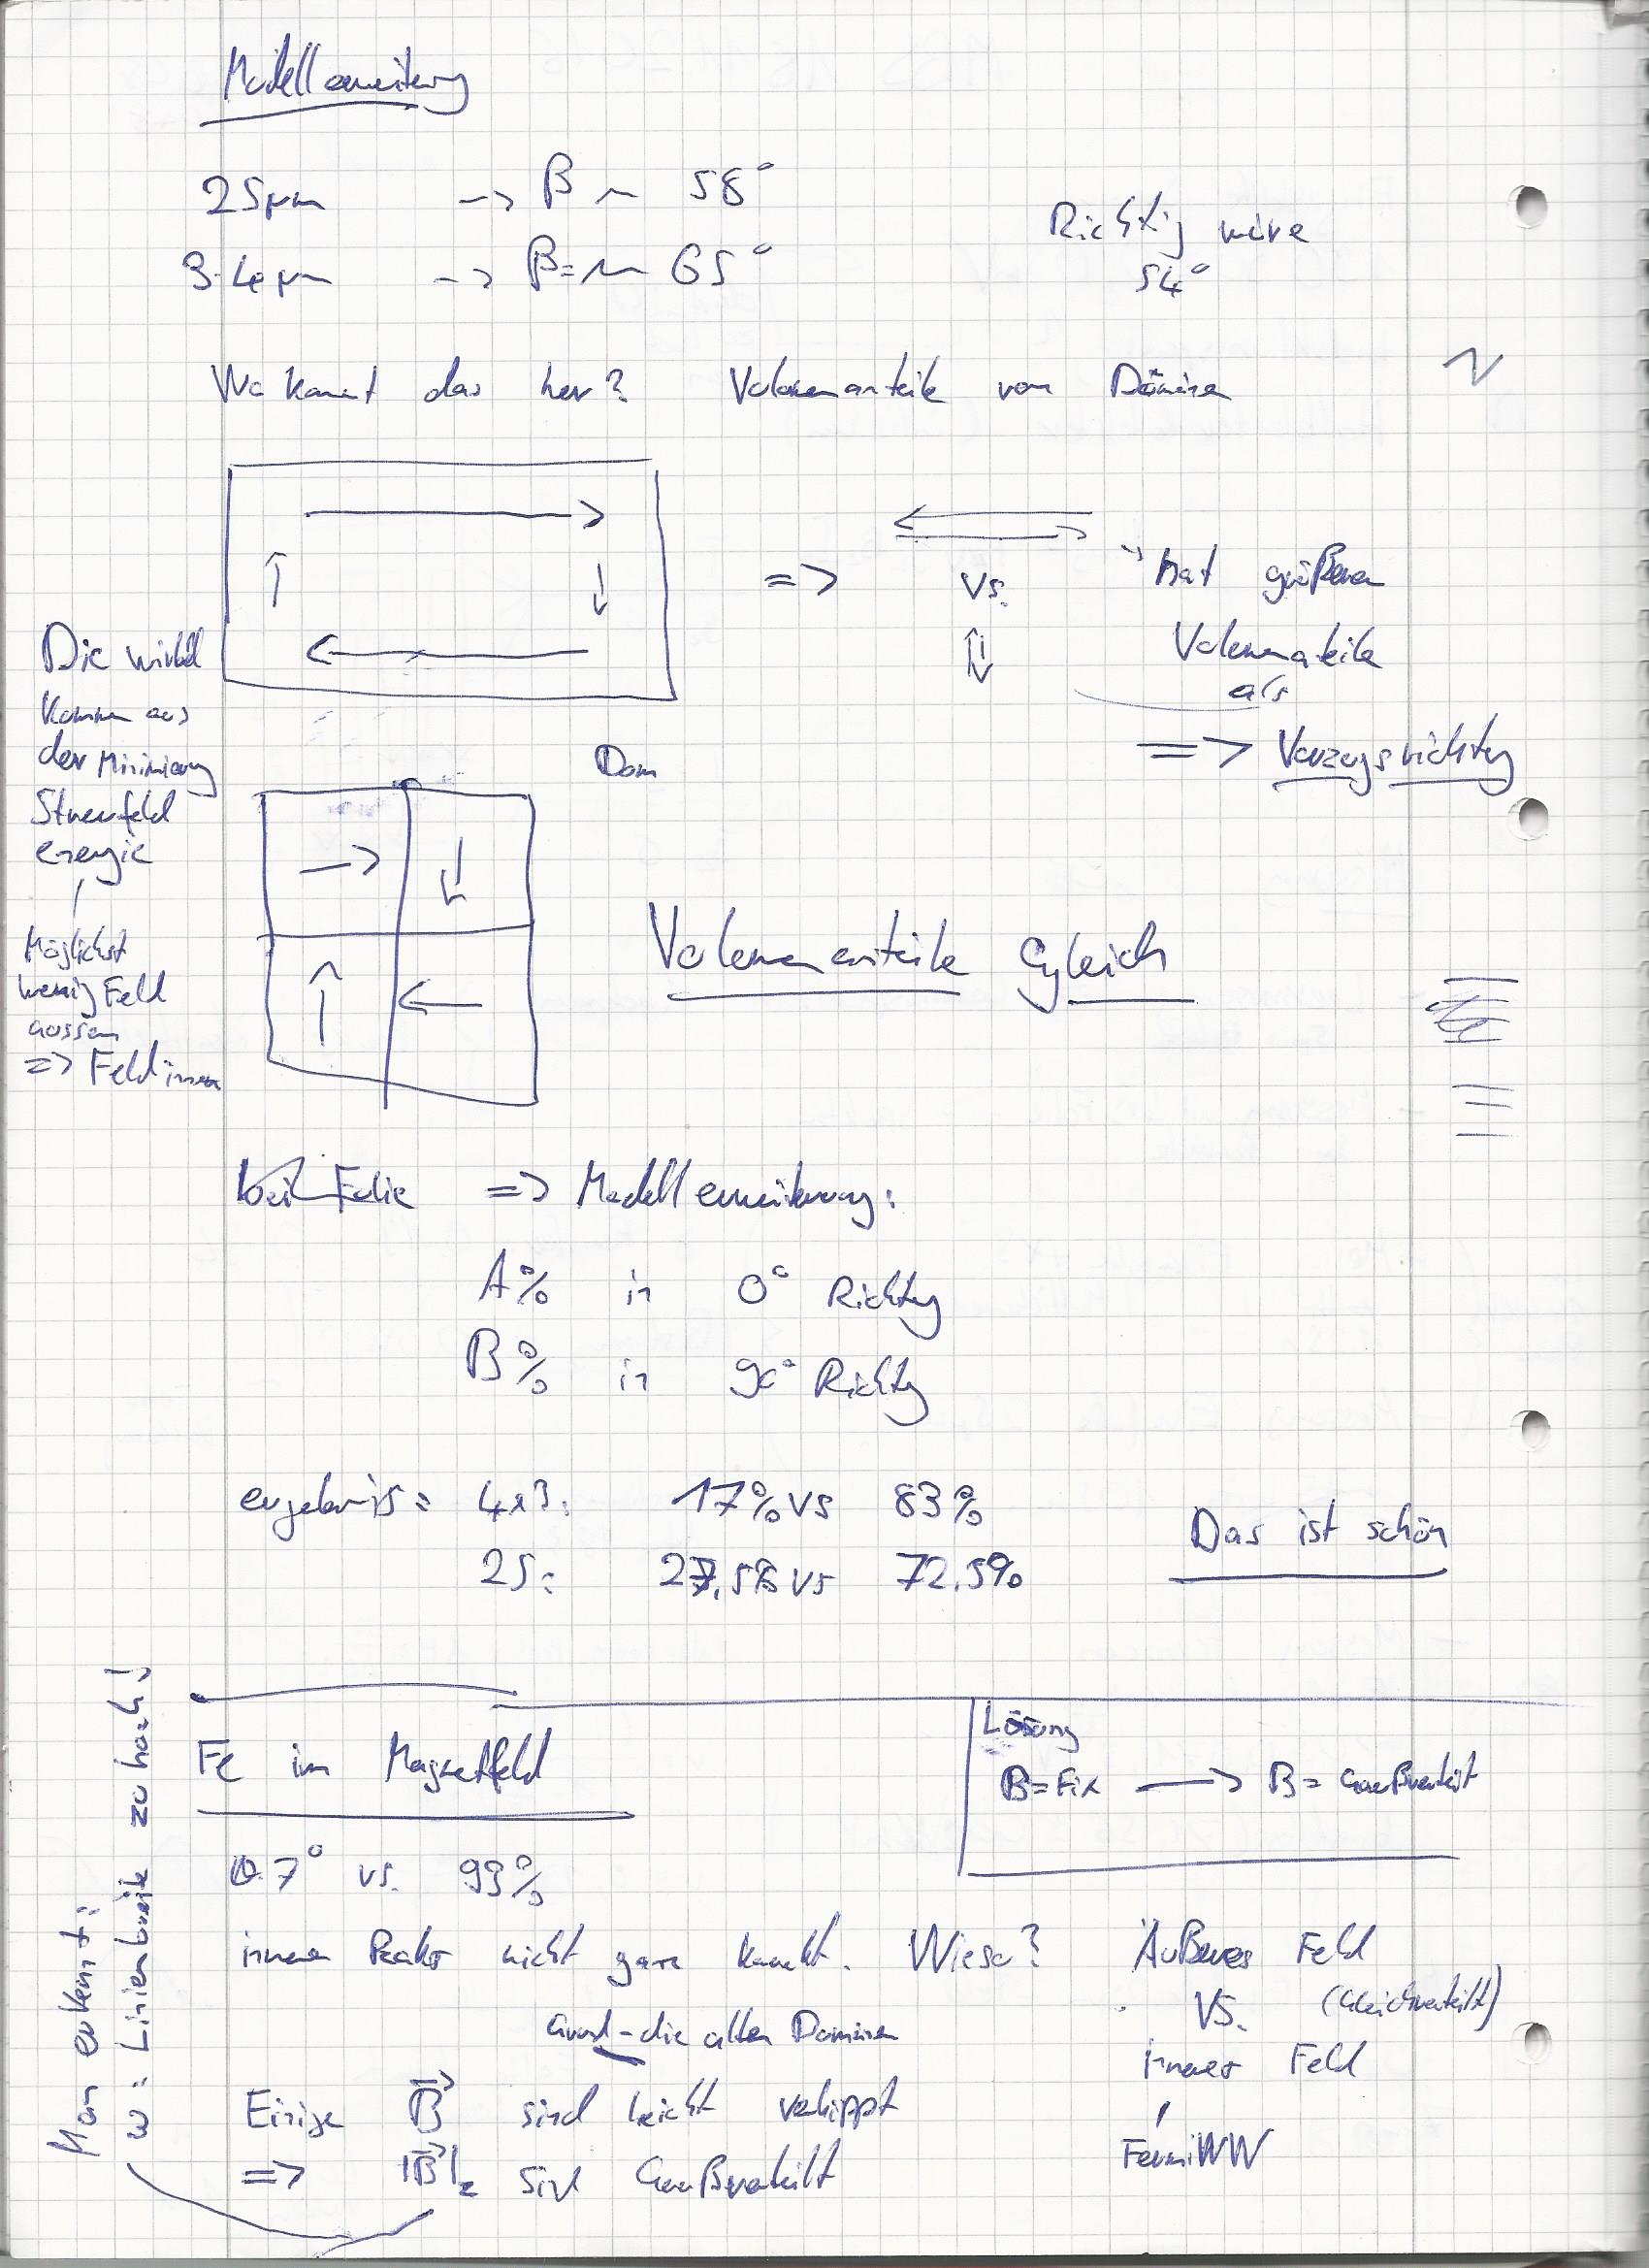 Modellerweiterung
25µm -> β ~ 58°
3-4µm -> β = ~ 65°
Richtig wäre
54°
Wo kommt das her? Volumenanteile von Domänen
=> vs. hat größeren
Volumenanteile
als
=> Vorzugsrichtung
Die wirbel
kommen aus
der Minimierung
Streufeld
energie
Möglichst
wenig Feld
aussen
=> Feld innen
Dom
Volumenanteile Gleich
bei Folie => Modellerweiterung:
A% in 0° Richtung
B% in 90° Richtung
ergebnis: 4x3: 17% vs 83%
25: 27,5% vs 72.5%
Das ist schön
Fe im Magnetfeld
Lösung
B = Fix -> B = Gaußverteilt
0.7° vs. 99%
innere Peaks nicht ganz korrekt. Wieso?
Grund - die alten Domänen
Einige B sind leicht verkippt
=> |B|z sind Gaußverteilt
Äußeres Feld
VS. (Gleichverteilt)
inneres Feld
Fermi WW
Man erkennt:
ω = Linienbreite zu hoch!